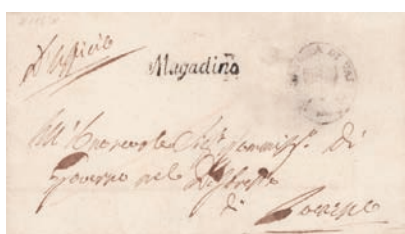 D'Ufficio
Magadino
All' Onorevole Sig.r Commiss.o di
Governo nel Distretto
di Locarno